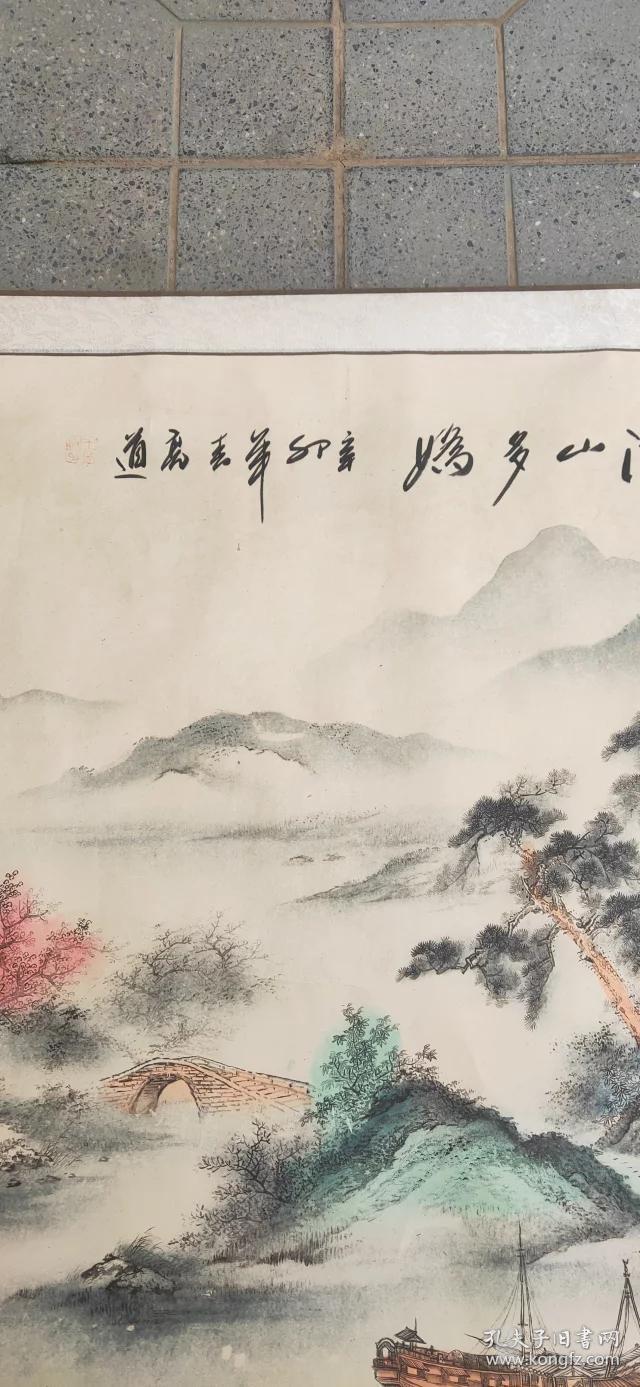 山多嬌 辛卯年春高道
孔夫子旧書网
www.kongfz.com